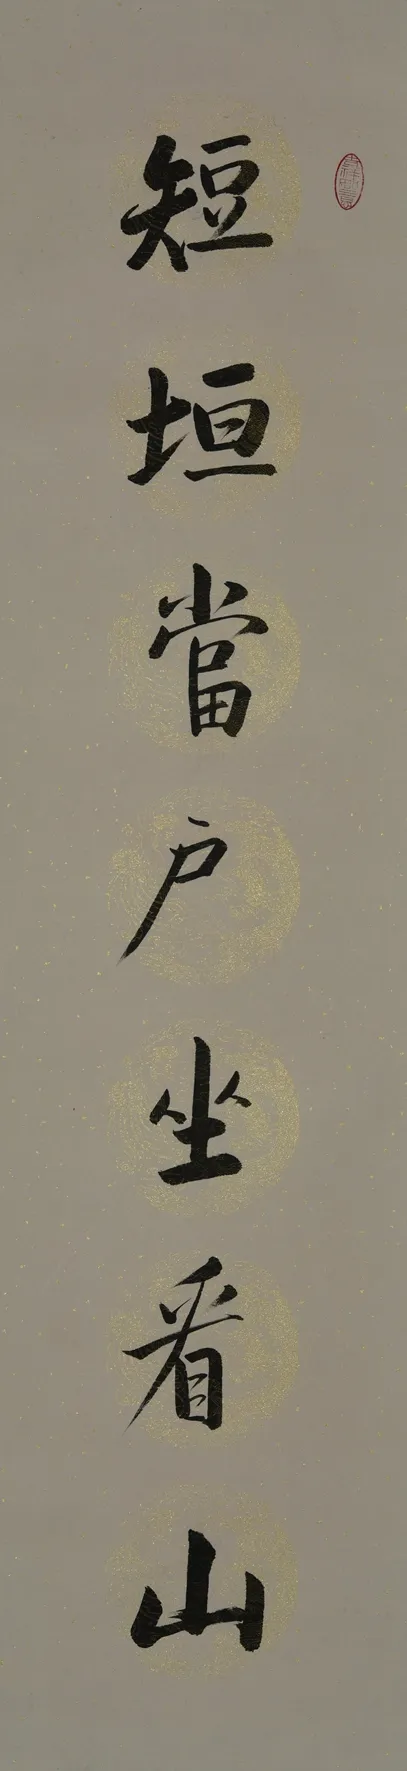 短垣當戶坐看山